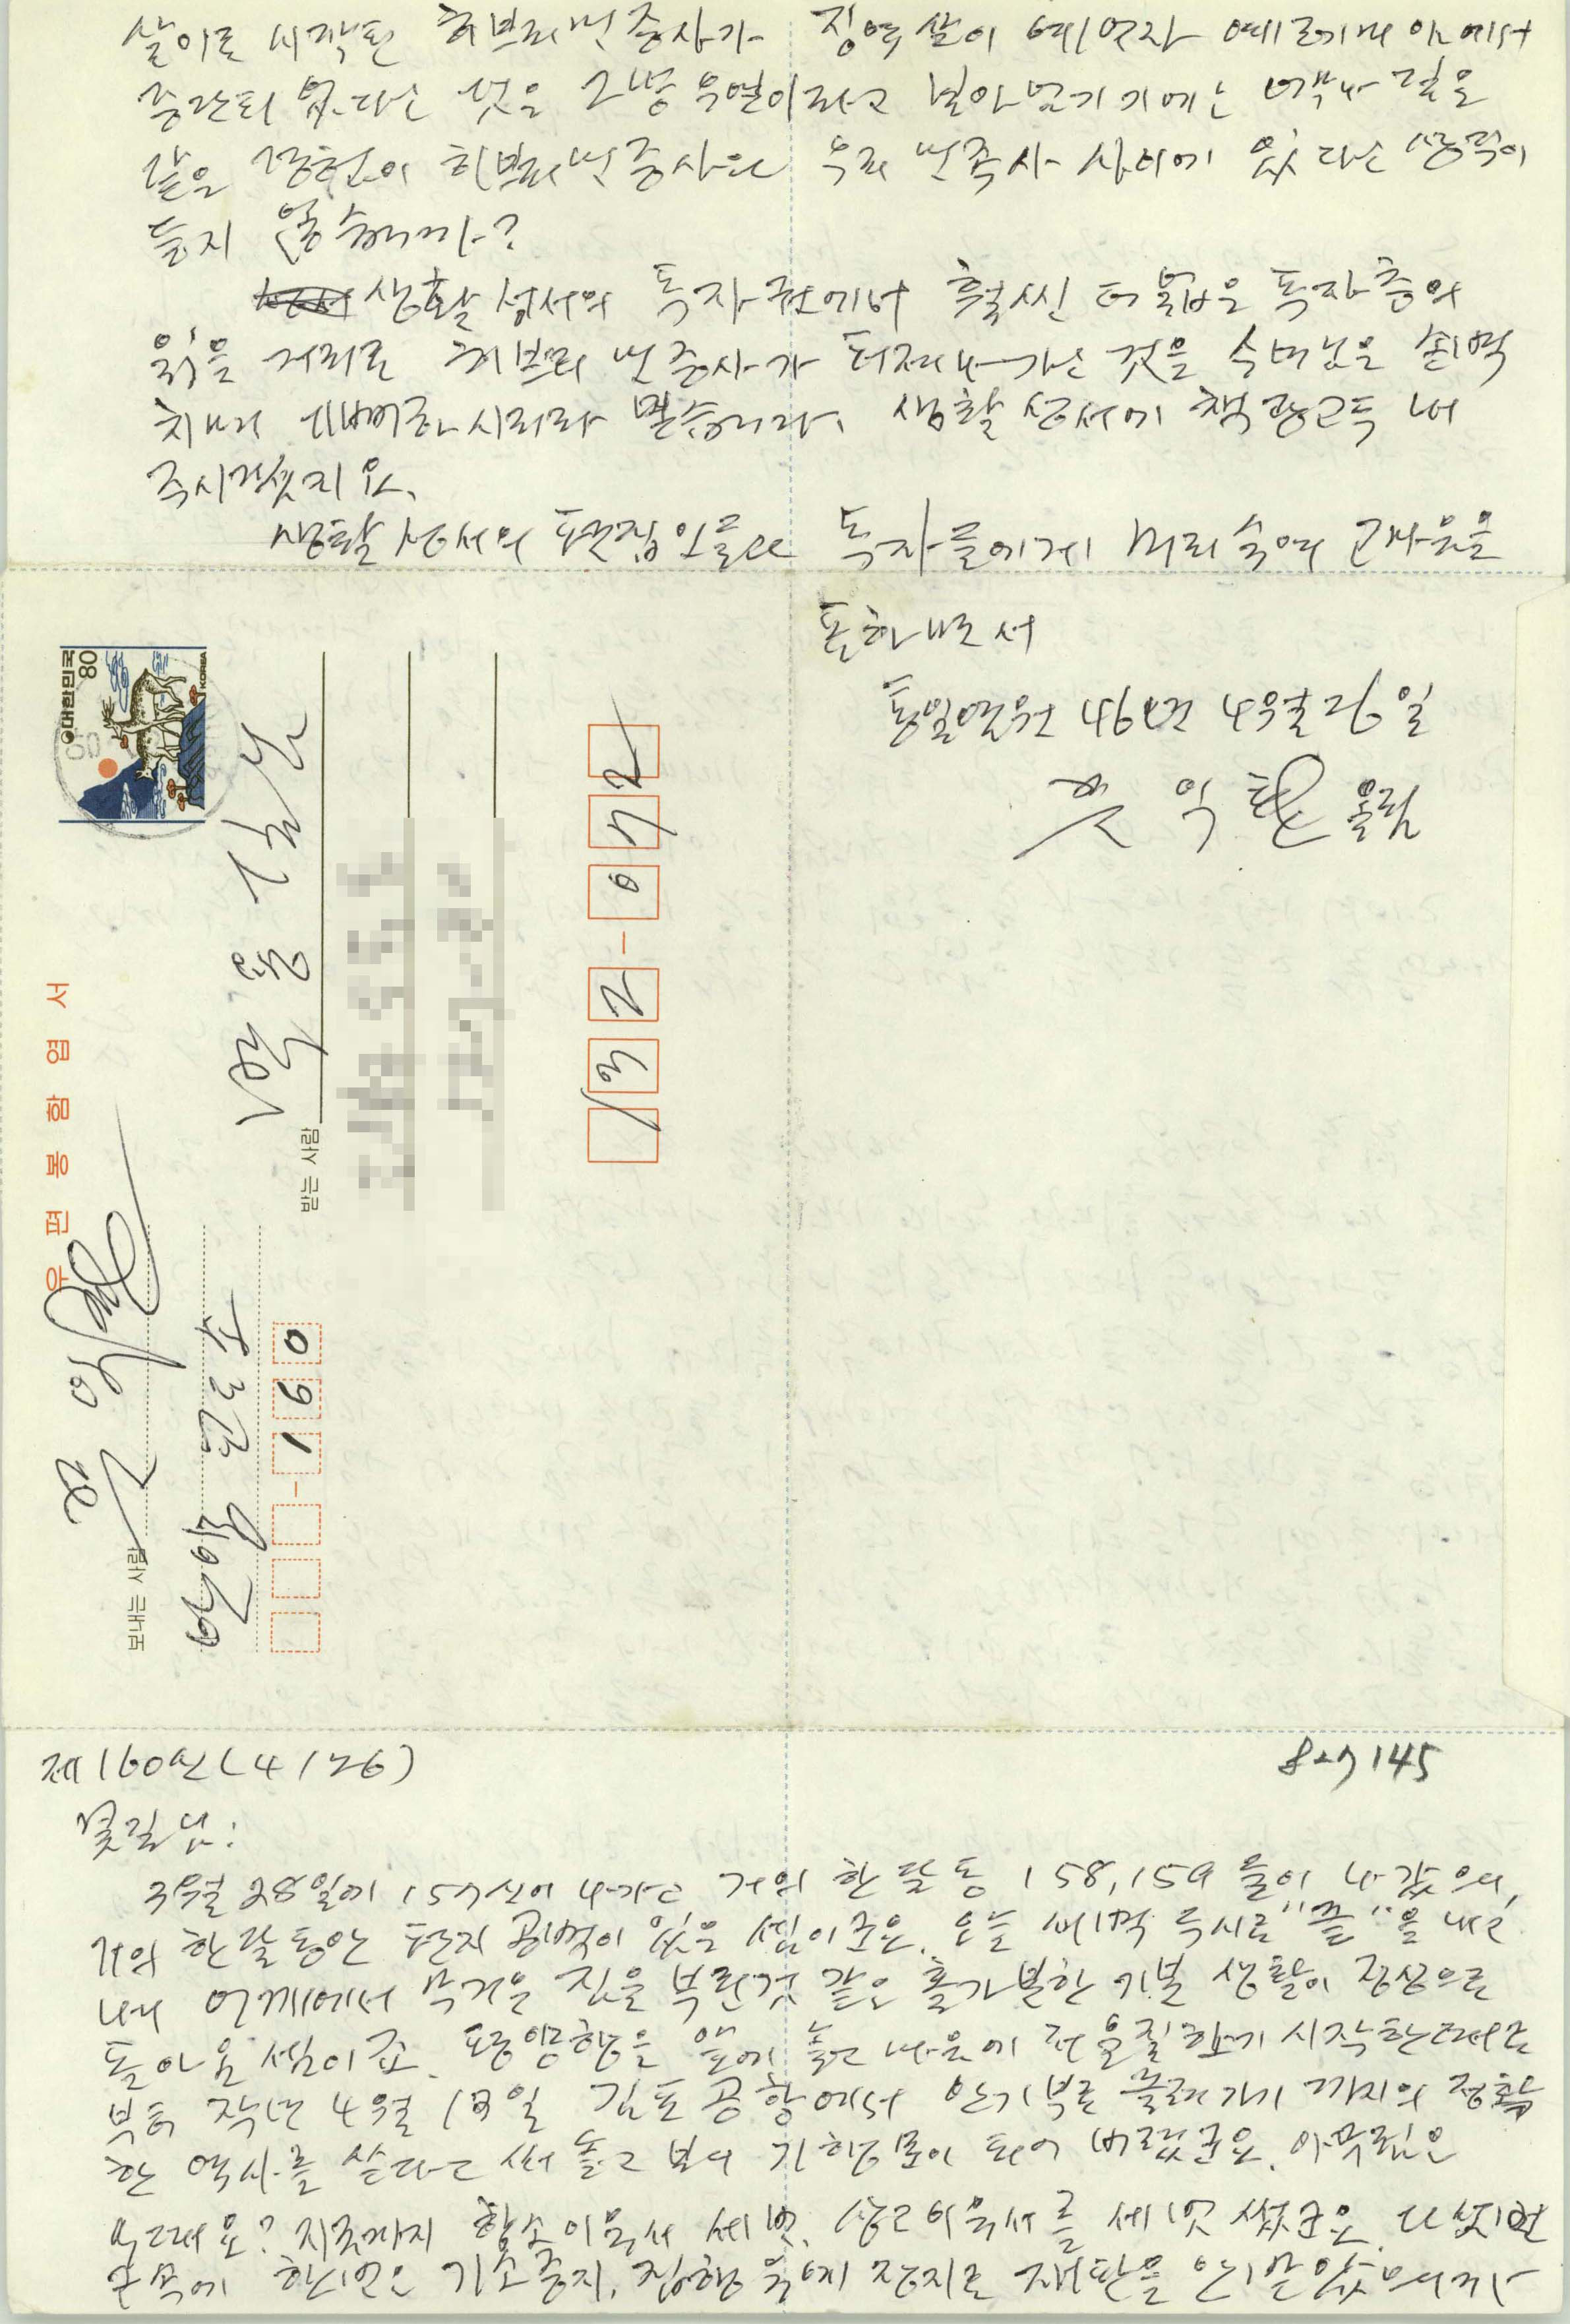 살이로 시작된 히브리민중사가 징역살이 예언자 예레미야에서
중단되었다는 것을 그냥 우연이라고 넘기기에는
같은 히브리민중사와 우리 민족사 사이에 있다는 생각이
들지 않습니까?
생활성서의 독자권에서 훨씬 더 넓은 독자층의
읽을 거리로 히브리 민중사가 퍼져나가는 것을 수녀님은 손뼉
치며 기뻐하시리라 믿습니다. 생활성서에 책광고도 내
주시겠지요.
생활성서의 편집인들과 독자들에게 머리숙여 고마움을
표하면서
통일염원 46년 4월 26일
문익환 올림
대한민국 KOREA
80
우편봉함엽서
받는 사람
132-042
보내는 사람
문익환
091
제160신(4/26)
827 145
꽃길님:
3월 28일에 157신이 나가고 거의 한달 동안 158, 159 둘이 나갔으니,
거의 한달동안 편지 공백이 있은 셈이군요. 오늘 새벽 두시로 "끝"을 내고
내 어깨에서 무거운 짐을 부린것 같은 홀가분한 기분 생활이 정상으로
돌아온 셈이죠. 평양행을 앞에 놓고 마음에 저울질하기 시작한 때로
부터 작년 4월 13일 김포공항에서 안기부로 끌려가기 까지의 정확
한 역사를 쓴다고 써 놓고 보니 기행문이 되어 버렸군요. 아무렴은
어때요? 지금까지 항소이유서 세번, 상고이유서를 세번 썼군요. 다섯번
투옥에 한번은 기소중지, 집행 정지로 재판을 안 받았으니까